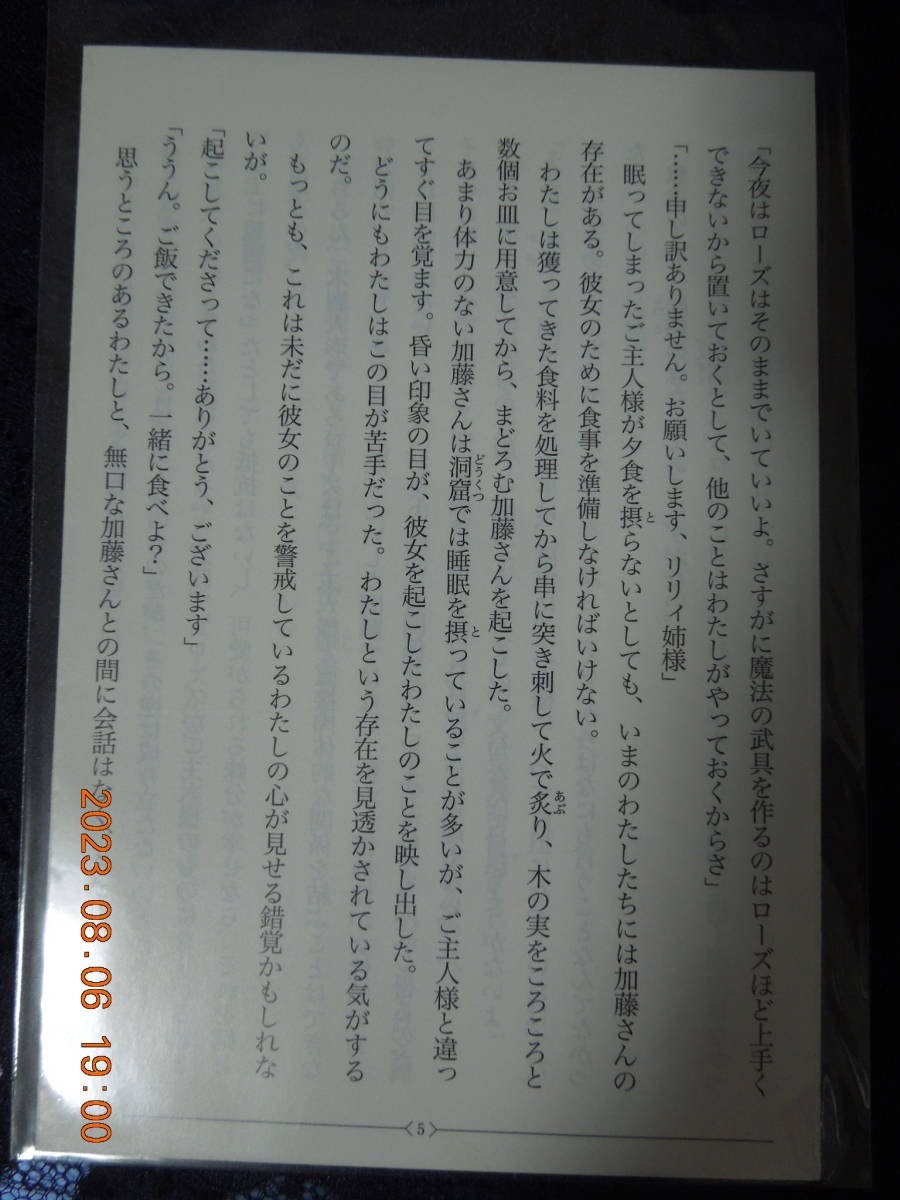 「今夜はローズはそのままでいていいよ。さすがに魔法の武具を作るのはローズほど上手く
できないから置いておくとして、他のことはわたしがやっておくからさ」
「……申し訳ありません。お願いします、リリィ姉様」
眠ってしまったご主人様が夕食を摂らないとしても、いまのわたしたちには加藤さんの
存在がある。彼女のために食事を準備しなければいけない。
わたしは獲ってきた食料を処理してから串に突き刺して火で炙り、木の実をころころと
数個お皿に用意してから、まどろむ加藤さんを起こした。
あまり体力のない加藤さんは洞窟では睡眠を摂っていることが多いが、ご主人様と違っ
てすぐ目を覚ます。昏い印象の目が、彼女を起こしたわたしのことを映し出した。
どうにもわたしはこの目が苦手だった。わたしという存在を見透かされている気がする
のだ。
もっとも、これは未だに彼女のことを警戒しているわたしの心が見せる錯覚かもしれな
いが。
「起こしてくださって……ありがとう、ございます」
「ううん。ご飯できたから。一緒に食べよ？」
思うところのあるわたしと、無口な加藤さんとの間に会話はな
〈5〉
2023.08.06 19:00